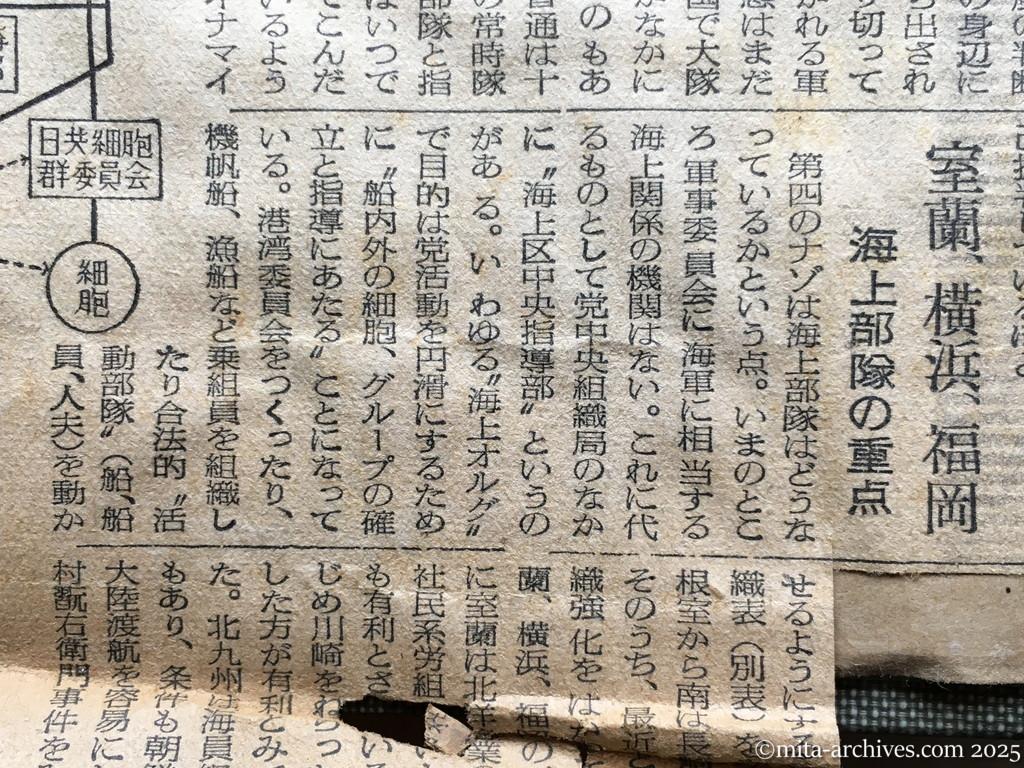 の半断
の身辺に
ち出され
り切って
かれる軍
惑はまだ
国で大隊
かなかに
のもあ
普通は十
の常時隊
部隊と指
はいつで
てこんだ
いるよう
オナマイ
室蘭、横浜、福岡
海上部隊の重点
第四のナゾは海上部隊はどうな
っているかという点。いまのとこ
ろ軍事委員会に海軍に相当する
海上関係の機関はない。これに代
るものとして党中央組織局のなか
に〝海上区中央指導部〟というの
があ る。い わゆる〝海上オルグ〟
で目的は党活動を円滑にするため
に〝船内外の細胞、グループの確
立と指導にあたる〟ことになって
いる。港湾委員会をつくったり、
機帆船、漁船など乗組員を組織し
たり合法的〝活
動部隊〟（船、船
員、人夫）を動か
せるようにす
織表（別表）を
根室から南は長
そのうち、最近
織強化を
蘭、横浜、福
に室蘭は北洋
社民系労組
も有利とさ
じめ川崎をねらっ
した方が有利とみ
た。北九州は海員
もあり、条件も朝鮮
大陸渡航を容易に
村翫右衛門事件を
日共細胞
群委員会
細胞
©mita-archives.com 2025